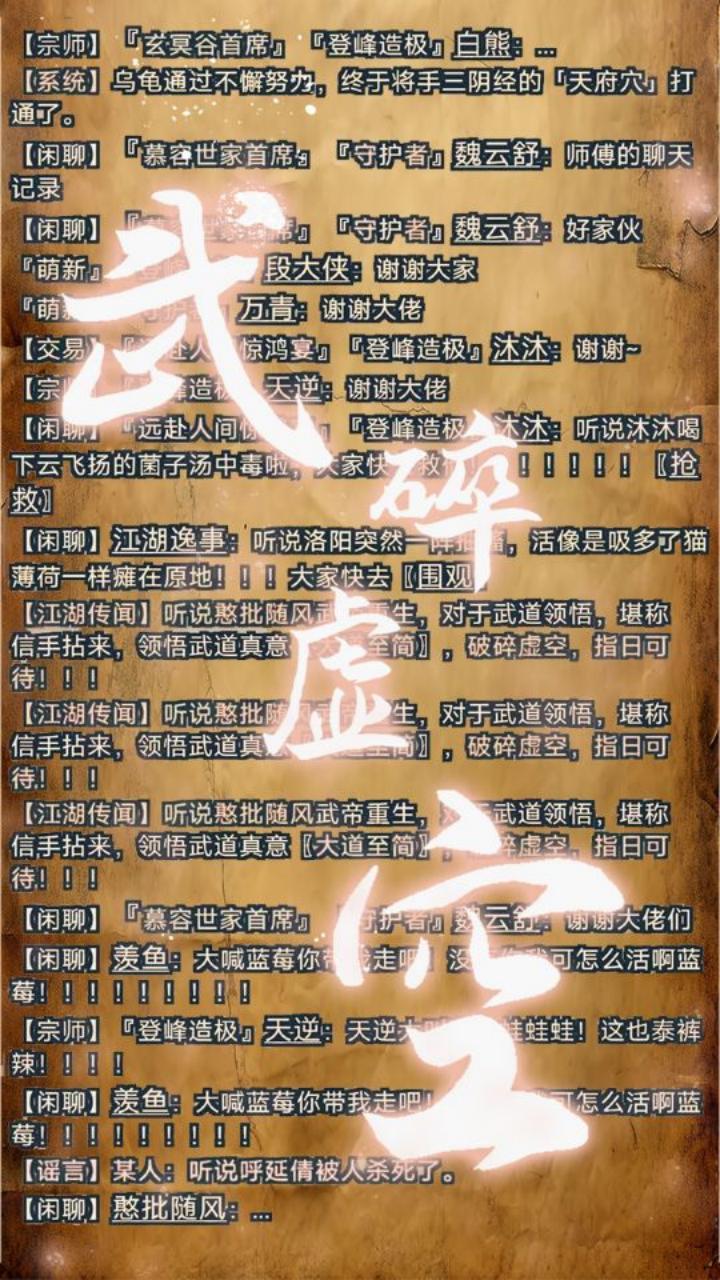 【宗师】『玄冥谷首席』『登峰造极』白熊：...
【系统】乌龟通过不懈努力，终于将手三阴经的「天府穴」打
通了。
【闲聊】『慕容世家首席』『守护者』魏云舒：师傅的聊天
记录
【闲聊】『慕容世家首席』『守护者』魏云舒：好家伙
『萌新』 段大侠：谢谢大家
『萌新 万青：谢谢大佬
【交易】 赴人 惊鸿宴』『登峰造极』沐沐：谢谢~
【宗 峰造极 天逆：谢谢大佬
【闲聊】『远赴人间惊 』『登峰造极』沐沐：听说沐沐喝
下云飞扬的菌子汤中毒啦，大家快 救 ！！！！！！〖抢
救〗
【闲聊】江湖逸事：听说洛阳突然一阵抽搐，活像是吸多了猫
薄荷一样瘫在原地！！！大家快去〖围观〗
【江湖传闻】听说憨批随风武帝重生，对于武道领悟，堪称
信手拈来，领悟武道真意〖大道至简〗，破碎虚空，指日可
待！！！
【江湖传闻】听说憨批随风武帝重生，对于武道领悟，堪称
信手拈来，领悟武道真意〖大道至简〗，破碎虚空，指日可
待！！！
【江湖传闻】听说憨批随风武帝重生，对于武道领悟，堪称
信手拈来，领悟武道真意〖大道至简〗，破碎虚空，指日可
待！！！
【闲聊】『慕容世家首席』『守护者』魏云舒：谢谢大佬们
【闲聊】羡鱼：大喊蓝莓你带我走吧！没 你我可怎么活啊蓝
莓！！！！！！！！！
【宗师】『登峰造极』天逆：天逆大 蛙蛙蛙！这也泰裤
辣！！！！
【闲聊】羡鱼：大喊蓝莓你带我走吧！ 我可怎么活啊蓝
莓！！！！！！！！！
【谣言】某人：听说呼延倩被人杀死了。
【闲聊】憨批随风：...
武
碎
虚
空